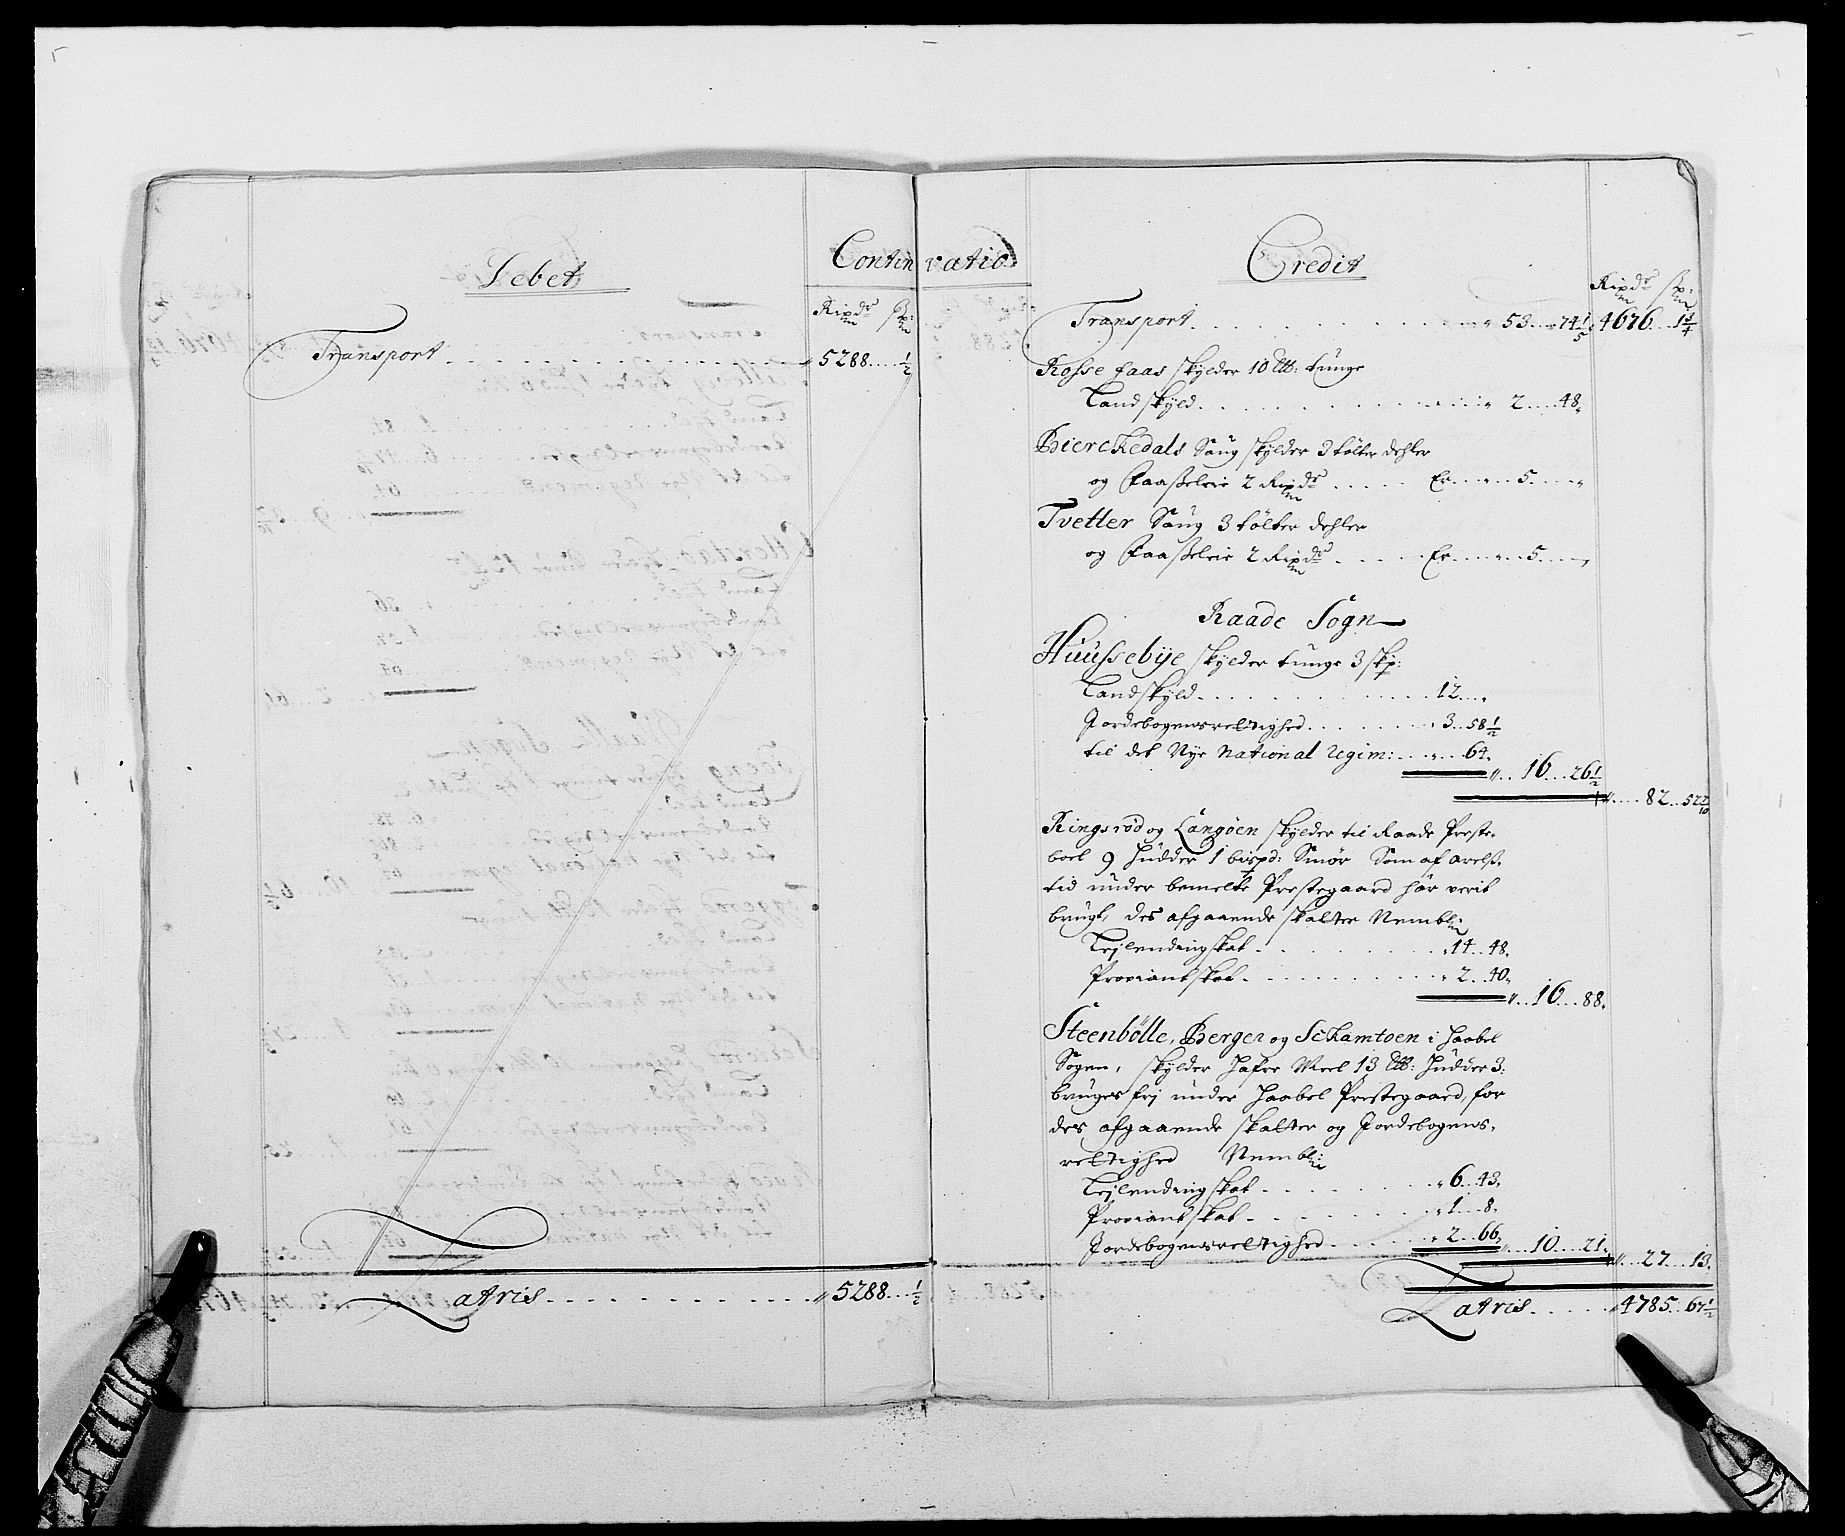 Debet
Continuatio
Rixdr sk:
Transport 5288 1/2
Latris 5288 1/2
Credit
Rixdr sk:
Transport 53 74 1/5 4676 1 3/4
Rosse faas skylder 10 lb: tunge
Landskyld 2 48
Bierckedals Saug skylder 3 tolter dehler
og Faasseleie 2 Rixdr Er 5
Tvetter Saug 3 tolter dehler
og Faasseleie 2 Rixdr Er 5
Raade Sogn
Huussebÿe skylder tunge 3 skp:
Landskyld 12
Jordebogensrettighed 3 58 1/2
til det Nye National regim: 64
16 26 1/2
82 52 7/10
Ringsrød og Langøen skylder til Raade Preste-
boel 9 hudder 1 bispd: Smør Som af arels
tid under bemelte Prestegaard har verit
brugt, des afgaaende skatter Nembl:
Leÿlendingskat 14 48
Proviantskat 2 40
16 88
Steenbølle, Berger og Sckamtoen i Haabel
Sogen, skylder Hafre Meel 13 lb: Hudder 3:
bruges frj under Haabel Prestegaard, for
des afgaaende skatter og Jordebogens-
rettighed Nembl:
Leÿlendingskat 6 43
Proviantskat 1 8
Jordebogensrettighed 2 66
10 21
27 13
Latris 4785 67 1/2